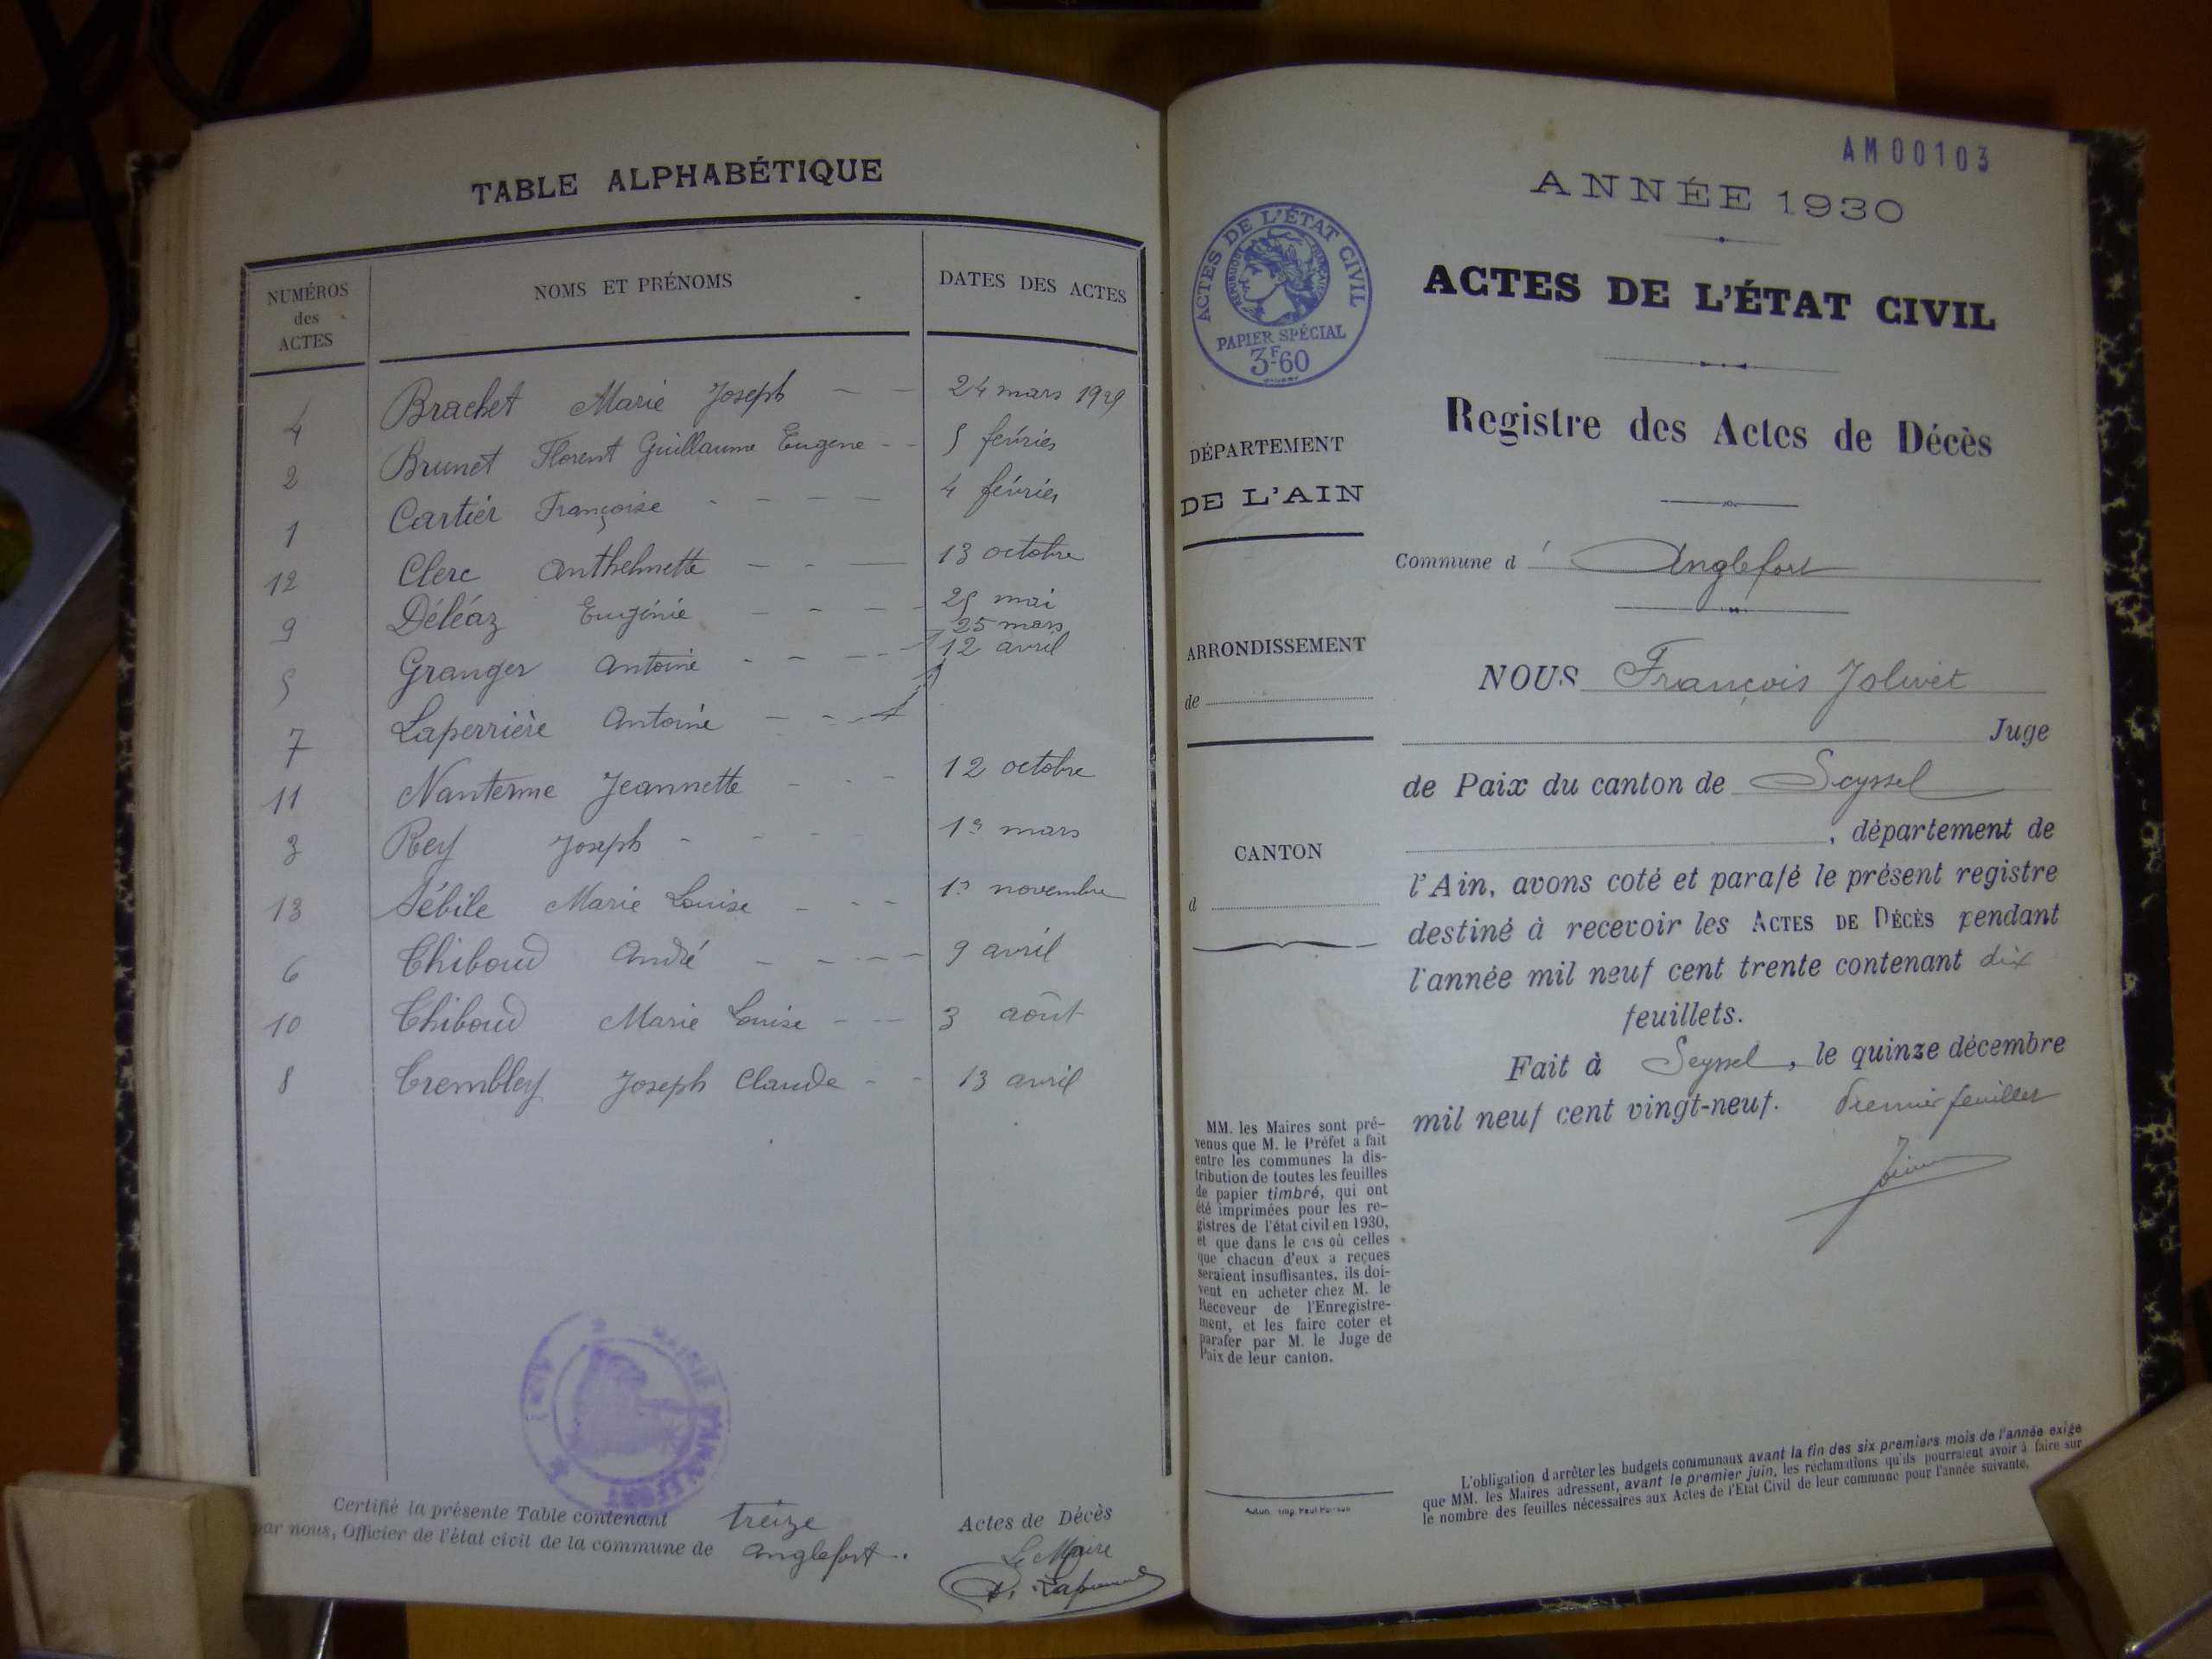 TABLE ALPHABÉTIQUE
NUMÉROS des ACTES
NOMS ET PRÉNOMS
DATES DES ACTES
4 Brachet Marie Joseph - - 24 mars 1929
2 Brunet Florent Guillaume Eugene - - 5 février
1 Cartier Françoise - - - - 4 février
12 Clerc Anthelmette - - - 13 octobre
9 Déléaz Eugénie - - - - 25 mai
25 mars
5 Granger Antoine - - - - 12 avril
7 Laperrière Antoine - - -
11 Nanterme Jeannette - - - 12 octobre
3 Rey Joseph - - - 13 mars
13 Sébile Marie Louise - - - 13 novembre
6 Thiboud André - - - - 9 avril
10 Thiboud Marie Louise - - 3 août
8 Trembley Joseph Claude - - 13 avril
Certifié la présente Table contenant treize Actes de Décès
par nous, Officier de l'état civil de la commune de Anglefort.
Le Maire
AM00103
ANNÉE 1930
ACTES DE L'ÉTAT CIVIL
RÉPUBLIQUE FRANÇAISE
PAPIER SPÉCIAL
3F60
ACTES DE L'ÉTAT CIVIL
Registre des Actes de Décès
DÉPARTEMENT
DE L'AIN
Commune d' Anglefort
ARRONDISSEMENT
de
NOUS François Jolivet
Juge
de Paix du canton de Seyssel
, département de
CANTON
d
l'Ain, avons coté et parafé le présent registre
destiné à recevoir les ACTES DE DÉCÈS pendant
l'année mil neuf cent trente contenant dix
feuillets.
Fait à Seyssel, le quinze décembre
mil neuf cent vingt-neuf. Premier feuillet
MM. les Maires sont pré-
venus que M. le Préfet a fait
entre les communes la dis-
tribution de toutes les feuilles
de papier timbré, qui ont
été imprimées pour les re-
gistres de l'état civil en 1930,
et que dans le cas où celles
que chacun d'eux a reçues
seraient insuffisantes, ils doi-
vent en acheter chez M. le
Receveur de l'Enregistre-
ment, et les faire coter et
parafer par M. le Juge de
Paix de leur canton.
L'obligation d'arrêter les budgets communaux avant la fin des six premiers mois de l'année exige
que MM. les Maires adressent, avant le premier juin, les réclamations qu'ils pourraient avoir à faire sur
le nombre des feuilles nécessaires aux Actes de l'Etat Civil de leur commune pour l'année suivante.